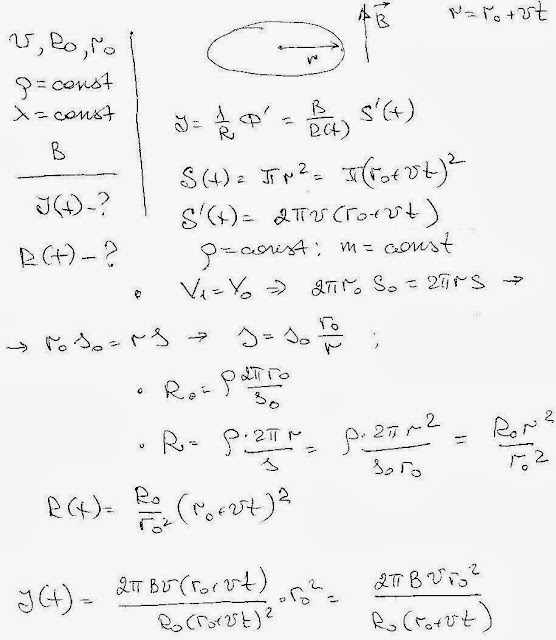 v, R₀, r₀
ρ = const
λ = const
B
J(t) - ?
R(t) - ?
B⃗
r
r = r₀ + vt
J = 1/R Φ' = B/R(t) S'(t)
S(t) = πr² = π(r₀+vt)²
S'(t) = 2πv(r₀+vt)
ρ = const; m = const
• V₁ = V₀ ⇒ 2πr₀ s₀ = 2πrs →
→ r₀ s₀ = rs → s = s₀ r₀/r ;
• R₀ = ρ 2πr₀/s₀
• R = ρ·2πr/s = ρ·2πr²/s₀r₀ = R₀r²/r₀²
R(t) = R₀/r₀² (r₀+vt)²
J(t) = 2πBv(r₀+vt)/R₀(r₀+vt)² · r₀² = 2πBvr₀²/R₀(r₀+vt)